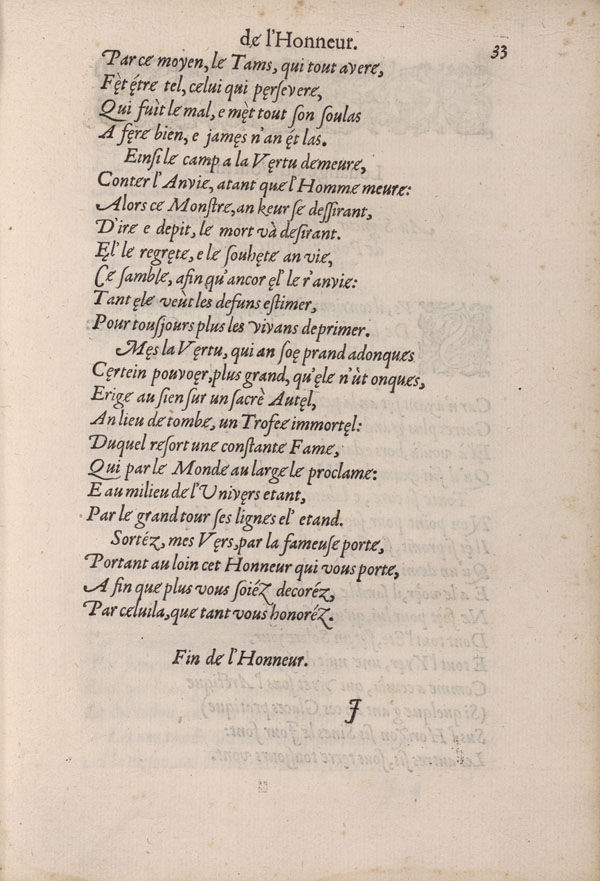 dę l'Honneur.
33
Par ce moyen, le Tams, qui tout avere,
Fèt étre tel, celui qui pęrſevere,
Qui fuìt le mal, e mèt tout ſon ſoulas
A fęre bien, e jamęs n'an ét las.
Einſi le camp a la Vęrtu demeure,
Conter l'Anvie, atant que l'Homme meure:
Alors ce Monſtre, an keur ſe deſſirant,
D'ire e depit, le mort và deſirant.
Ęl' le regręte, e le ſouhęte an vie,
Ce ſamble, afin qu'ancor ęl' le r'anvie:
Tant ęle veùt les defuns eſtimer,
Pour touſjours plus les vivans deprimer.
Męs la Vęrtu, qui an ſoę prand adonques
Cęrtein pouvoęr, plus grand, qu'ęle n'ùt onques,
Erige au ſien ſur un ſacrè Autęl,
An lieu de tombe, un Trofee immortęl:
Duquel reſort une conſtante Fame,
Qui par le Monde au large le proclame:
E au milieu de l'Univęrs etant,
Par le grand tour ſes lignes el' etand.
Sortéz, mes Vęrs, par la fameuſe porte,
Portant au loin cet Honneur qui vous porte,
A fin que plus vous ſoiéz decoréz,
Par celuila, que tant vous honoréz.
Fin de l'Honneur.
J